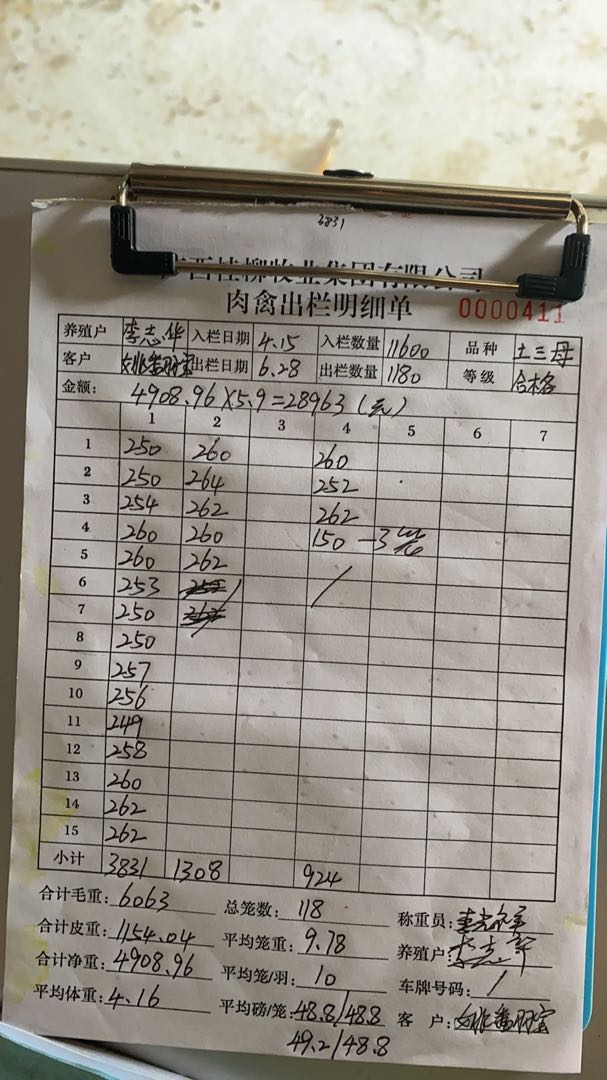 3831
西桂柳牧业集团有限公司
肉禽出栏明细单 0000411
养殖户 李志华 入栏日期 4.15 入栏数量 11600 品种 土三母
客户 出栏日期 6.28 出栏数量 1180 等级 合格
金额: 4908.96×5.9=28963(元)
1 2 3 4 5 6 7
1 250 260 260
2 250 264 252
3 254 262 262
4 260 260 150 -3
5 260 262
6 253
7 250
8 250
9 257
10 256
11 249
12 258
13 260
14 262
15 262
小计 3831 1308 924
合计毛重: 6063 总笼数: 118 称重员:
合计皮重: 1154.04 平均笼重: 9.78 养殖户: 李志华
合计净重: 4908.96 平均笼/羽: 10 车牌号码: /
平均体重: 4.16 平均磅/笼: 48.8/48.8 客 户:
49.2/48.8